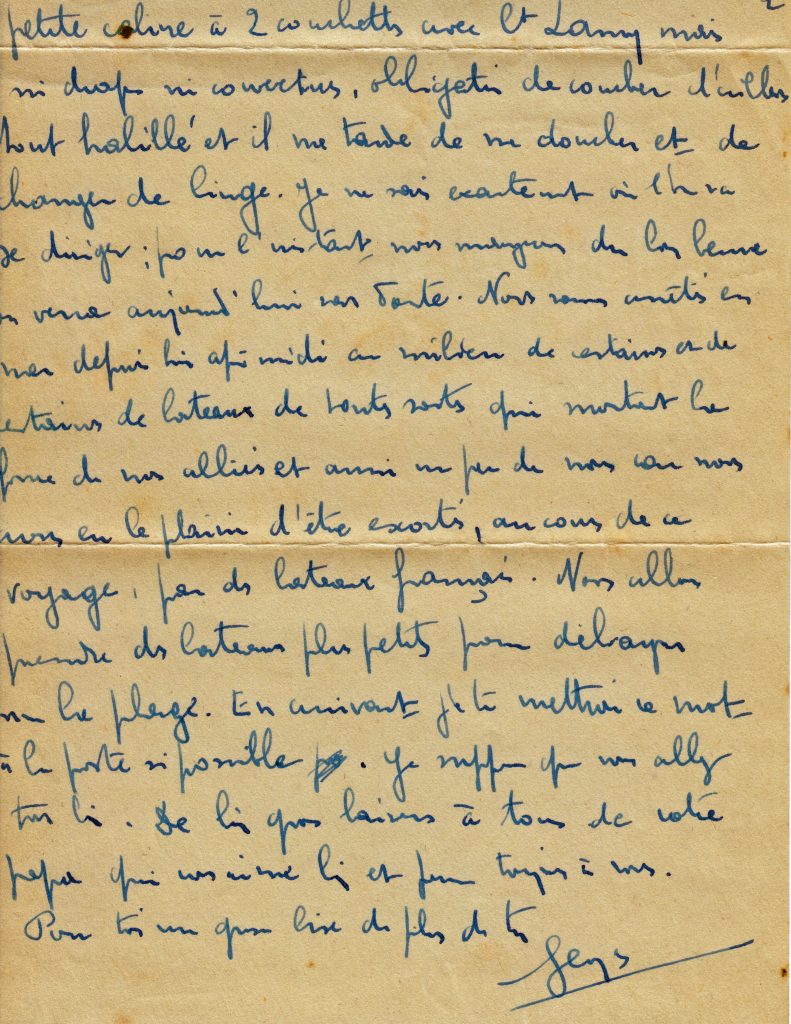 2
petite cabine à 2 couchettes avec Lt Lamy mais
ni draps ni couvertures, obligation de coucher d'ailleurs
tout habillé et il me tarde de me doucher et de
changer de linge. Je ne sais exactement où l'on va
se diriger ; pour l'instant nous mangeons du bon beurre
on verra aujourd'hui sans doute. Nous sommes arrêtés en
mer depuis hier après midi au milieu de centaines et de
centaines de bateaux de toutes sortes qui montent la
force de nos alliés et aussi un peu de nous car nous
avons eu le plaisir d'être escortés, au cours de ce
voyage, par des bateaux français. Nous allons
prendre des bateaux plus petits pour débarquer
sur la plage. En arrivant je te mettrai ce mot
à la poste si possible. Je suppose que vous allez
tous bien. De bien gros baisers à tous de votre
papa qui vous aime bien et pense toujours à vous.
Pour toi une grosse bise de plus de ton